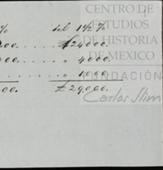 % del 1½ %
00. £24000.
00. „ 4000.
. „ 1000.
00. £29000.
CENTRO DE
ESTUDIOS
DE HISTORIA
DE MEXICO
FUNDACIÓN
Carlos Slim